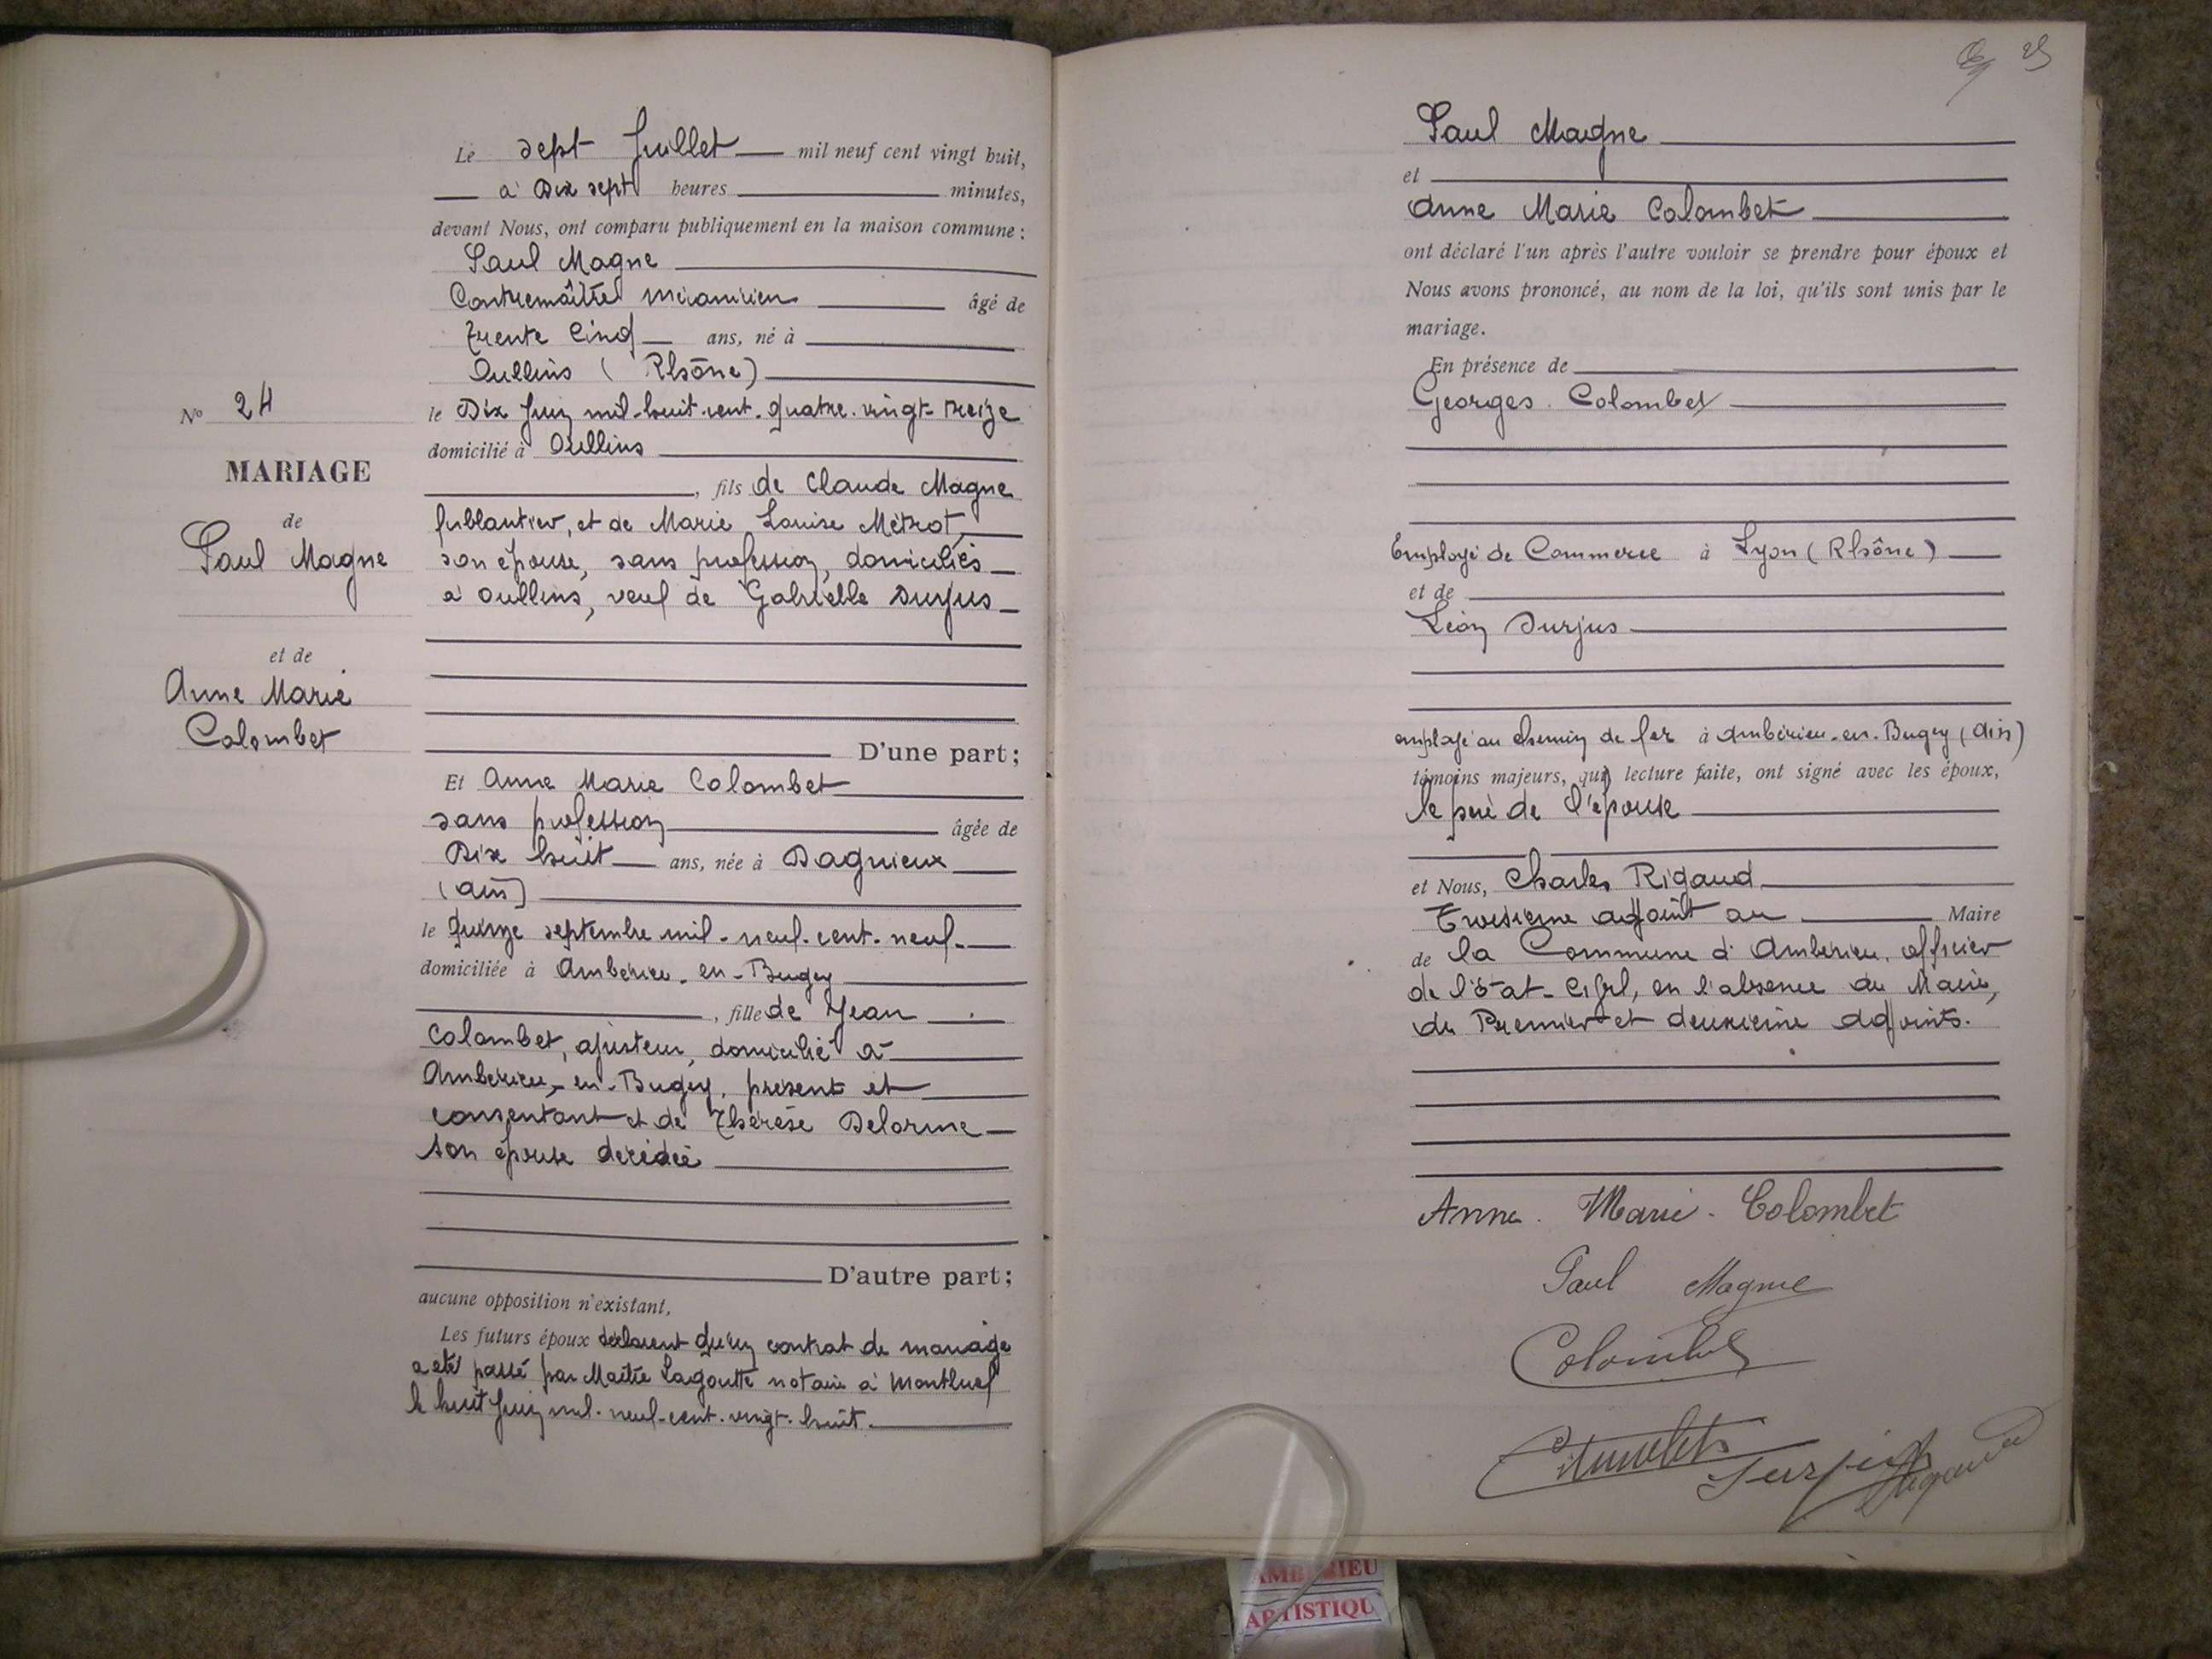 N° 24
MARIAGE
de
Paul Magne
et de
Anne Marie
Colombet
Le sept Juillet mil neuf cent vingt huit,
à Dix sept heures minutes,
devant Nous, ont comparu publiquement en la maison commune :
Paul Magne
Contremaître mécanicien âgé de
trente cinq ans, né à
Oullins (Rhône)
le Dix Juin mil-huit-cent-quatre-vingt-treize
domicilié à Oullins
, fils de Claude Magne
ferblantier, et de Marie Louise Métrot,
son épouse, sans profession, domiciliés
à Oullins, veuf de Gabrielle Durjus
D'une part ;
Et Anne Marie Colombet
sans profession âgée de
Dix huit ans, née à Dagnieux
(ain)
le quinze septembre mil-neuf-cent-neuf-
domiciliée à Ambérieu-en-Bugey
, fille de Jean
Colombet, ajusteur, domicilié à
Ambérieu-en-Bugey, présent et
consentant et de Thérèse Delorme
son épouse décédée
D'autre part ;
aucune opposition n'existant,
Les futurs époux déclarent qu'un contrat de mariage
a été passé par Maître Lagoutte notaire à Montluel
le huit Juin mil-neuf-cent-vingt-huit.
25
Paul Magne
et
Anne Marie Colombet
ont déclaré l'un après l'autre vouloir se prendre pour époux et
Nous avons prononcé, au nom de la loi, qu'ils sont unis par le
mariage.
En présence de
Georges Colombet
Employé de Commerce à Lyon (Rhône)
et de
Léon Durjus
employé au chemin de fer à Ambérieu-en-Bugey (Ain)
témoins majeurs, qui, lecture faite, ont signé avec les époux,
le père de l'épouse
et Nous, Charles Rigaud
Troisième adjoint au Maire
de la Commune d'Ambérieu, officier
de l'état-civil, en l'absence du Maire,
du Premier et deuxième adjoints.
Anne Marie Colombet
Paul Magne
Colombet
Durjus
Rigaud
AMBERIEU
ARTISTIQU